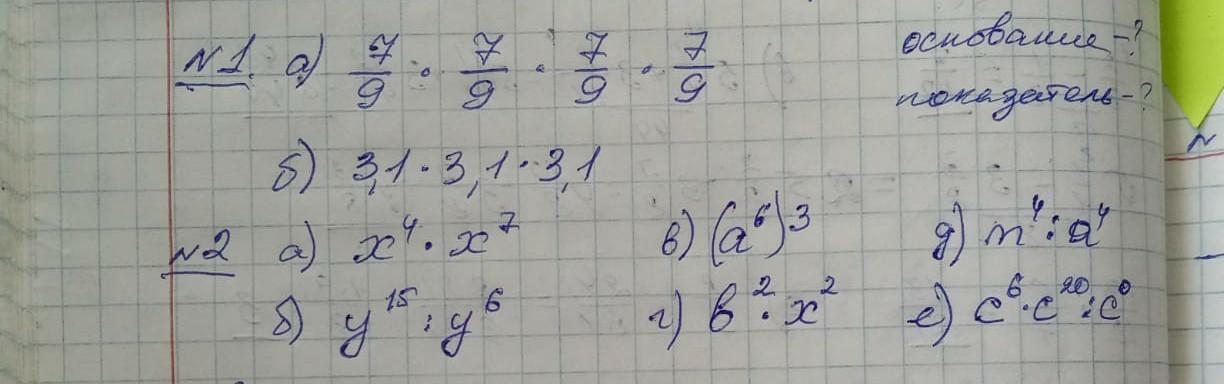 №1. а) 7/9 · 7/9 · 7/9 · 7/9 основание-?
показатель-?
б) 3,1 · 3,1 · 3,1
№2 а) x⁴ · x⁷ в) (a⁶)³ д) m⁴ : a⁴
б) y¹⁵ : y⁶ г) b² · x² е) c⁶ · c²⁰ : c⁰
N